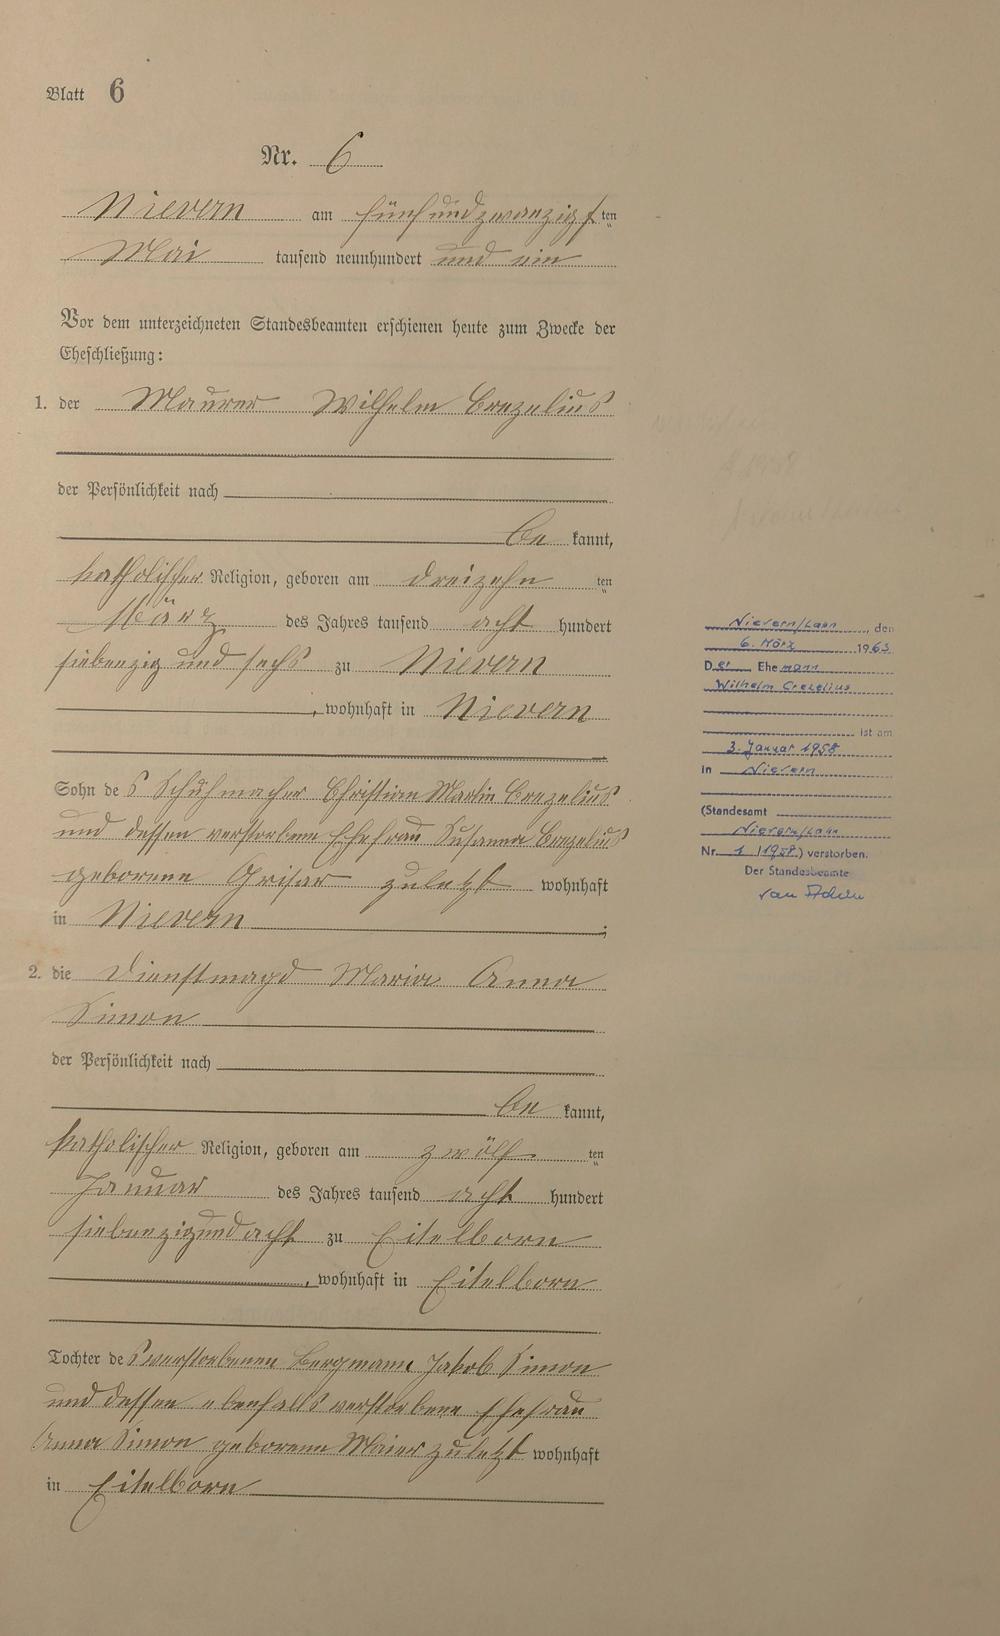 Blatt 6
Nr. 6
Nievern am fünfundzwanzigsten
Mai tausend neunhundert und ein
Vor dem unterzeichneten Standesbeamten erschienen heute zum Zwecke der
Eheschließung:
1. der Maurer Wilhelm Crezelius
der Persönlichkeit nach
be kannt,
katholischer Religion, geboren am dreizehn ten
März des Jahres tausend acht hundert
siebenzig und sechs zu Nievern
, wohnhaft in Nievern
Sohn des Schuhmacher Christian Martin Crezelius
und dessen verstorbene Ehefrau Susanna Crezelius
geborene Grisar zuletzt wohnhaft
in Nievern ;
2. die Dienstmagd Maria Anna
Simon
der Persönlichkeit nach
be kannt,
katholischer Religion, geboren am zwölf ten
Januar des Jahres tausend acht hundert
siebenzigundacht zu Eitelborn
, wohnhaft in Eitelborn
Tochter des verstorbenen Bergmann Jakob Simon
und dessen ebenfalls verstorbene Ehefrau
Anna Simon geborene Maier zuletzt wohnhaft
in Eitelborn
Nievern/Lahn, den
6. März 1963
Der Ehemann
Wilhelm Crezelius
ist am
3. Januar 1958
in Nievern
(Standesamt
Nievern/Lahn
Nr. 1/1958.) verstorben.
Der Standesbeamte